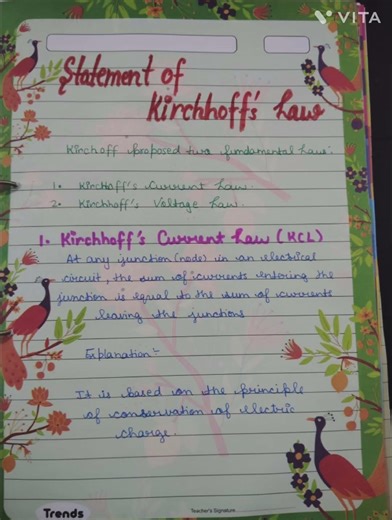 VITA
Statement of
Kirchhoff's Law
Kirchoff proposed two fundamental laws:
1. Kirchoff's Current Law.
2. Kirchhoff's Voltage Law.
1. Kirchhoff's Current Law (KCL)
At any junction (node) in an electrical
circuit, the sum of currents entering the
junction is equal to the sum of currents
leaving the junctions
Explanation:-
It is based on the principle
of conservation of electric
charge.
Trends
Teacher's Signature